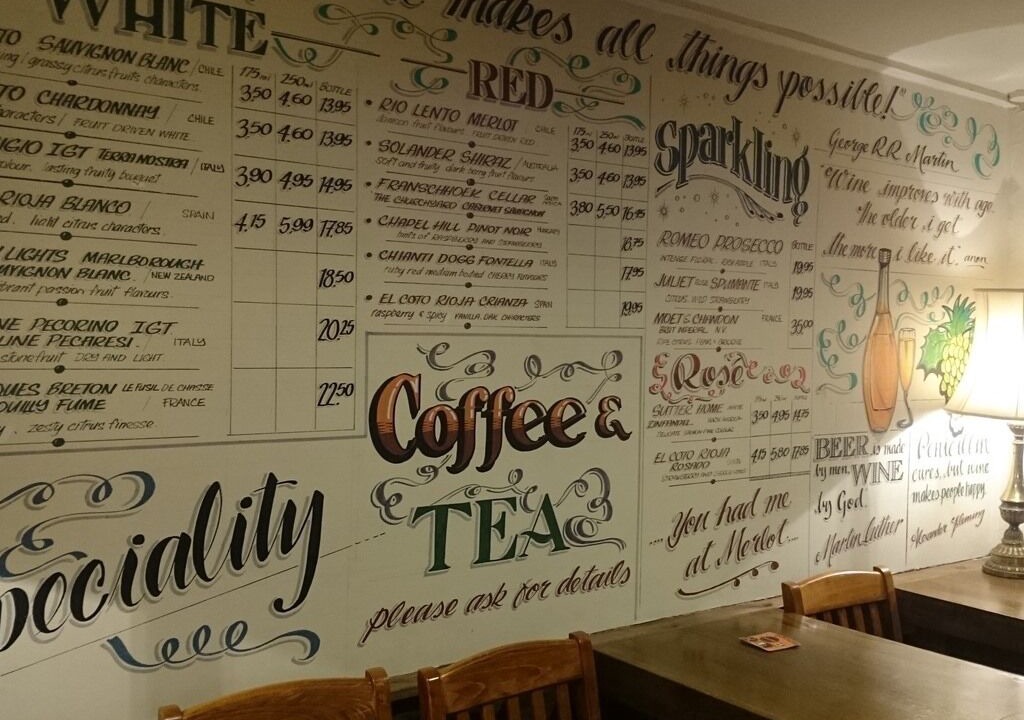 makes all things possible!"
George R.R. Martin
WHITE
SAUVIGNON BLANC / CHILE
/ grassy citrus fruits characters.
175ml 250ml BOTTLE
3.50 4.60 13.95
CHARDONNAY / CHILE
characters / FRUIT DRIVEN WHITE
3.50 4.60 13.95
IGT TERRA NOSTRA / ITALY
lasting fruity bouquet
3.90 4.95 14.95
RIOJA BLANCO / SPAIN
citrus characters.
4.15 5.99 17.85
LIGHTS MARLBOROUGH
SAUVIGNON BLANC / NEW ZEALAND
vibrant passion fruit flavours.
18.50
PECORINO IGT
PECARESI. / ITALY
stonefruit DRY AND LIGHT
20.25
JACQUES BRETON LE FUSIL DE CHASSE
POUILLY FUME / FRANCE
zesty citrus finesse.
22.50
RED
175ml 250ml BOTTLE
• RIO LENTO MERLOT CHILE
fruit flavours FRUIT DRIVEN RED
3.50 4.60 13.95
• SOLANDER SHIRAZ / AUSTRALIA
soft and fruity dark berry flavours
3.50 4.60 13.95
• FRANSCHHOEK CELLAR
THE CHURCHYARD CABERNET SAUVIGNON
3.80 5.50 16.45
• CHAPEL HILL PINOT NOIR HUNGARY
hints of RASPBERRY AND STRAWBERRIES
16.75
• CHIANTI DOGG FONTELLA ITALY
ruby red medium bodied CHERRY FLAVOURS
17.95
• EL COTO RIOJA CRIANZA SPAIN
raspberry & spicy VANILLA OAK CHARACTERS
19.95
Sparkling
BOTTLE
ROMEO PROSECCO
INTENSE FLORAL ITALY
19.95
JULIET SPUMANTE ITALY
CITRUS, WILD STRAWBERRY
19.95
MOET & CHANDON FRANCE
BRUT IMPERIAL N.V.
RIPE CITRUS PEAR & BRIOCHE
35.00
Rosé
SUTTER HOME WHITE
ZINFANDEL
3.50 4.95 14.75
EL COTO RIOJA
ROSADO
4.15 5.80 17.85
"Wine improves with age.
The older i get
the more i like it". anon
BEER is made
by men, WINE
by God.
Martin Luther
Penicillin
cures, but wine
makes people happy.
Alexander Fleming
....You had me
at Merlot....
Coffee &
TEA
please ask for details
peciality